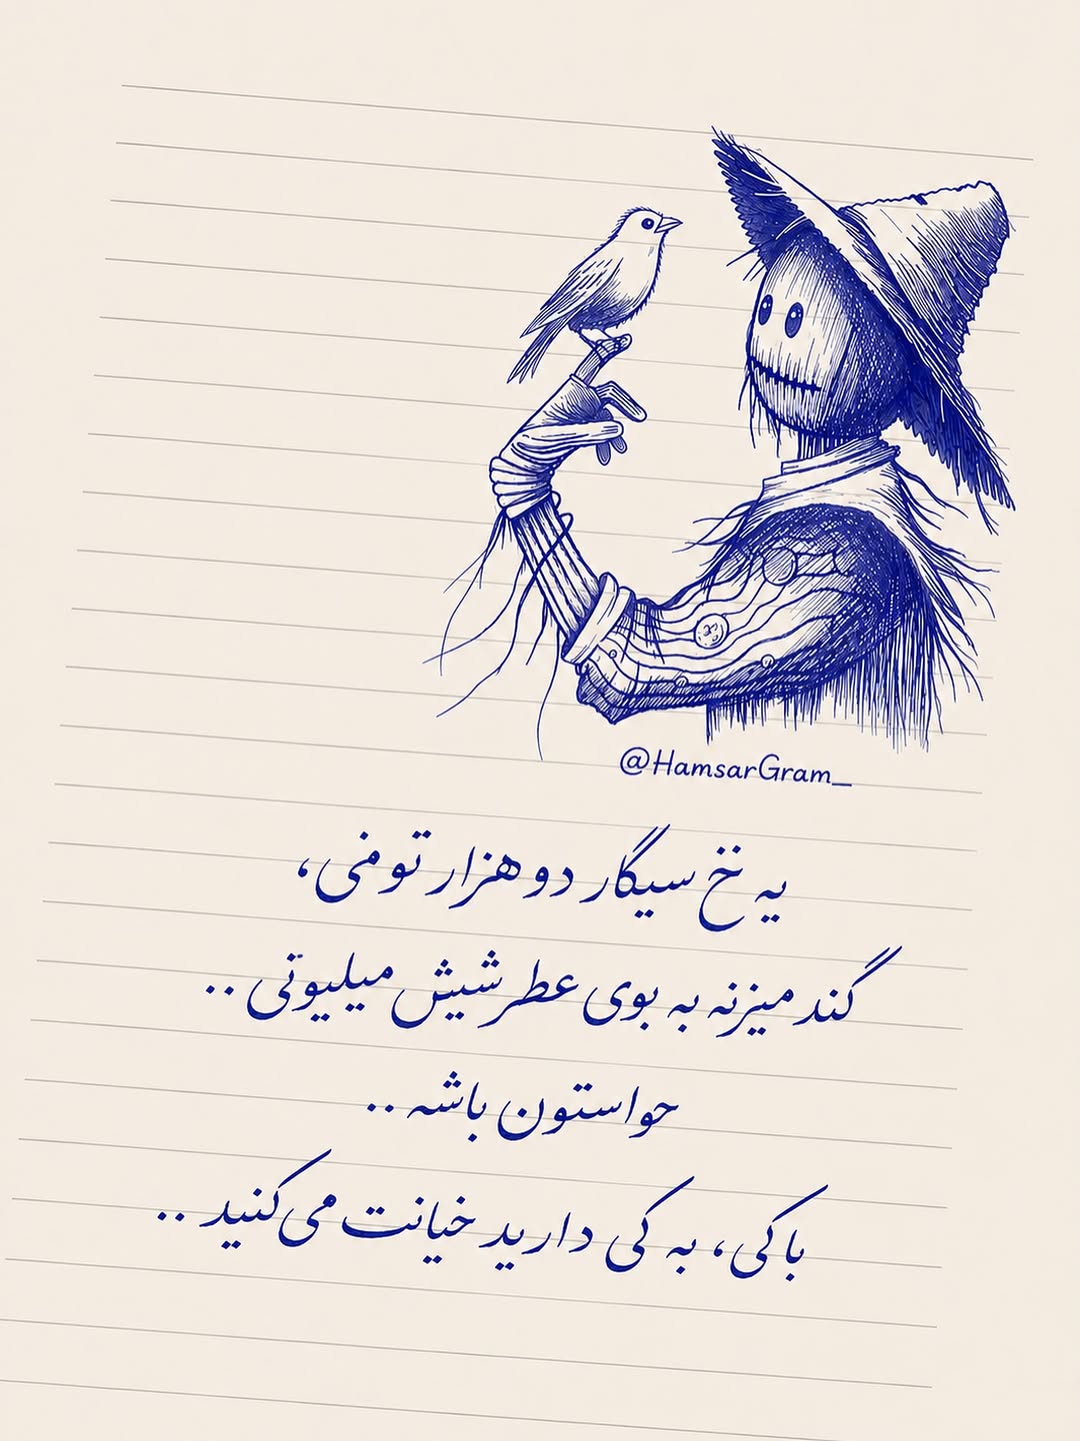 @HamsarGram_
یه نخ سیگار دو هزار تومنی،
گند میزنه به بوی عطر شیش میلیونی ..
حواستون باشه ..
با کی، به کی دارید خیانت می‌کنید ..